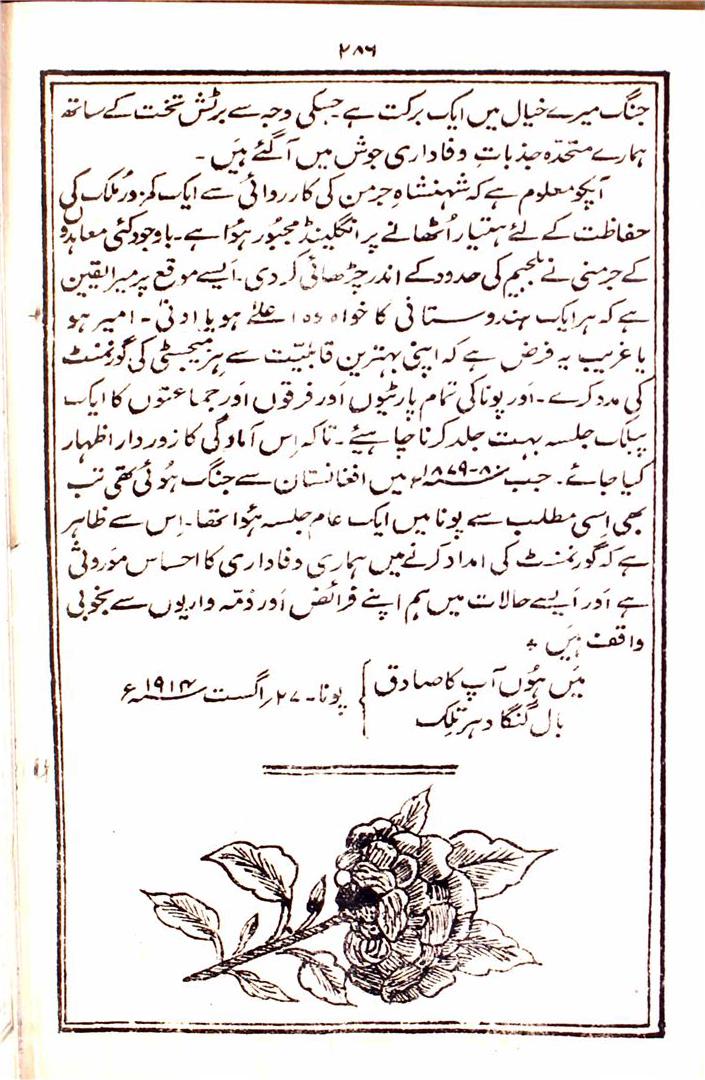 ۲۸۶
جنگ میرے خیال میں ایک برکت ہے جسکی وجہ سے برٹش تخت کے ساتھ
ہمارے متحدّہ جذباتِ وفاداری جوش میں آگئے ہَیں ۔
آپکو معلوم ہے کہ شہنشاہِ جرمن کی کارروائی سے ایک کمزور مُلک کی
حفاظت کے لئے ہتیار اُٹھانے پر انگلینڈ مجبُور ہؤا ہے۔ باوجود کئی معاہدوں
کے جرمنی نے بلجیم کی حدود کے اندر چڑھائی کردی۔ ایسے موقع پر میرا یقین
ہے کہ ہر ایک ہندوستانی کا خواہ وہ اعلےٰ ہو یا ادنیٰ ۔ امیر ہو
یا غریب یہ فرض ہے کہ اپنی بہترین قابلیّت سے ہِز میجسٹی کی گورنمنٹ
کی مدد کرے ۔ اور پونا کی تمام پارٹیوں اَور فرقوں اَور جماعتوں کا ایک
پبلک جلسہ بہت جلد کرنا چاہیئے ۔ تاکہ اِس آمادگی کا زوردار اظہار
کیا جائے ۔ جب ۸۰-۱۸۷۹ء میں افغانستان سے جنگ ہُوئی تھی تب
بھی اِسی مطلب سے پونا میں ایک عام جلسہ ہؤا تھا۔ اِس سے ظاہر
ہے کہ گورنمنٹ کی امداد کرنے میں ہماری وفاداری کا احساس مَوروثی
ہے اَور اَیسے حالات میں ہم اپنے فرائض اَور ذمّہ واریوں سے بخوبی
واقف ہَیں ٭
مَیں ہُوں آپ کا صادق
بال گنگا دہر تلک
پونا ۔ ۲۷؍ اگست ۱۹۱۴ء